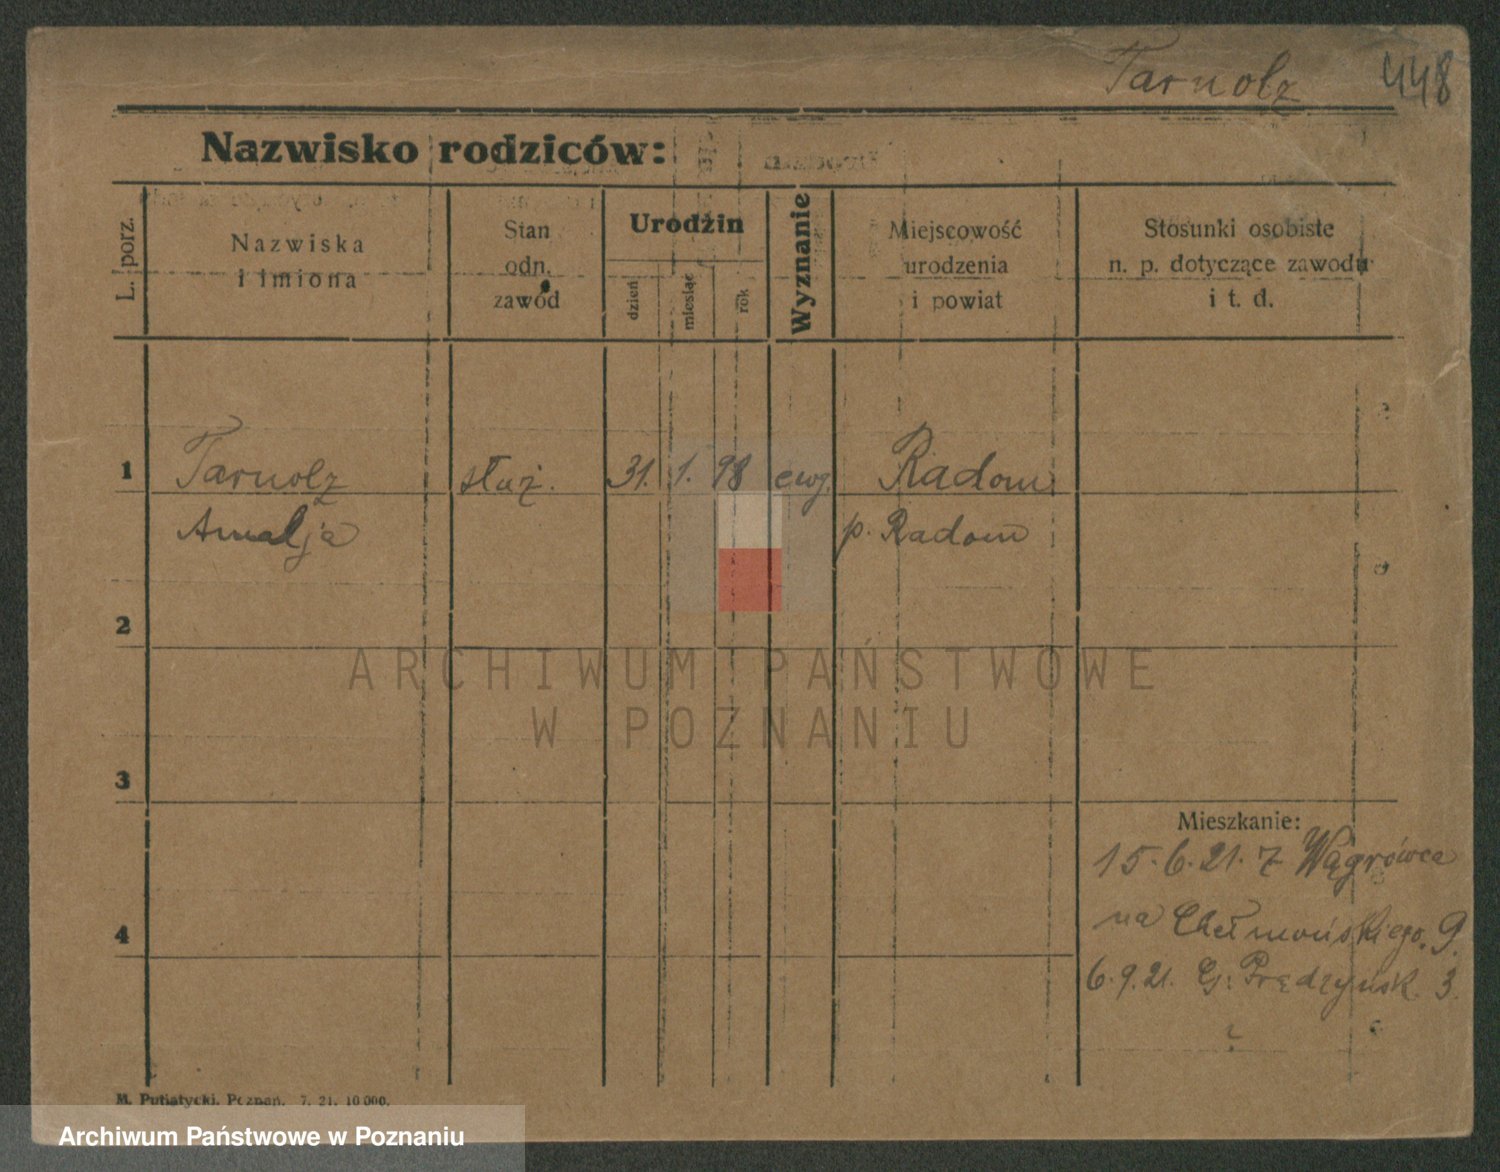 Tarnolz 448
Nazwisko rodziców:
L. porz.
Nazwiska
i imiona
Stan
odn.
zawód
Urodzin
dzień
miesiąc
rok
Wyznanie
Miejscowość
urodzenia
i powiat
Stosunki osobiste
n. p. dotyczące zawodu
i t. d.
1 Tarnolz służ. 31. 1. 98 ewg. Radom
Amalja p. Radom
2
ARCHIWUM PAŃSTWOWE
W POZNANIU
3
Mieszkanie:
15.6.21. z Wągrówca
na Chełmońskiego. 9.
4
6.9.21. G. Prądzyńsk. 3.
M. Putiatycki. Poznań. 7. 21. 10000.
Archiwum Państwowe w Poznaniu